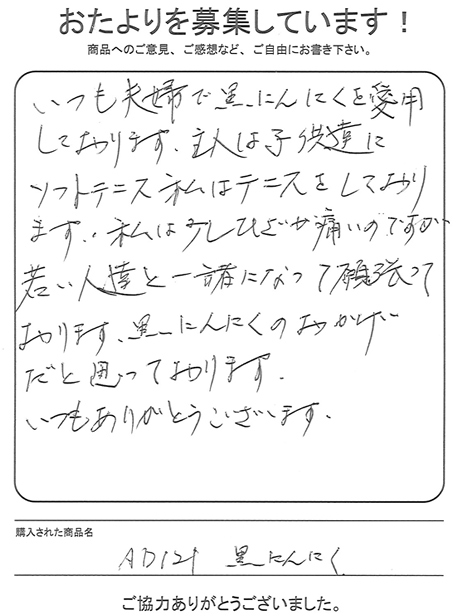 おたよりを募集しています！
商品へのご意見、ご感想など、ご自由にお書き下さい。
いつも夫婦で黒にんにくを愛用
しております。主人は子供達に
ソフトテニス私はテニスをしており
ます。私は少しひざが痛いのですが
若い人達と一諸になって頑張って
おります。黒にんにくのおかげ
だと思っております。
いつもありがとうございます。
購入された商品名
AD121 黒にんにく
ご協力ありがとうございました。